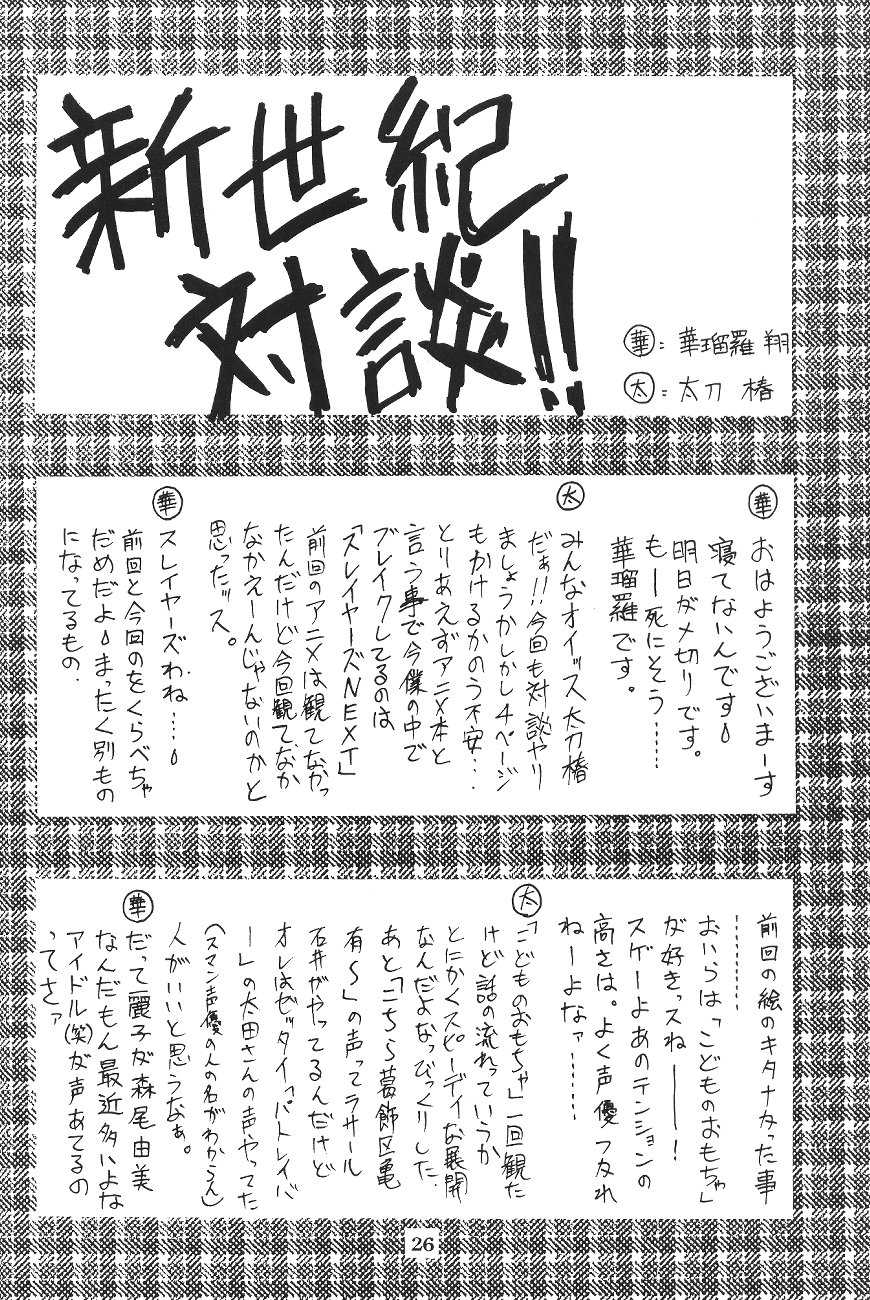 新世紀
対談!!
華：華瑠羅 翔
太：太刀 椿
華
おはようございまーす
寝てないんです
明日ダメ切りです。
もー死にそう……
華瑠羅です。
太
みんなオイッス太刀椿
だぁ!!今回も対談ヤリ
ましょうかしかし4ページ
もかけるかのう不安…
とりあえずアニメ本と
言う事で今僕の中で
ブレイクしてるのは
「スレイヤーズNEXT」
前回のアニメは観てなかっ
たんだけど今回観てなか
なかえーんじゃないのかと
思ったッス。
華
スレイヤーズわね…
前回と今回のをくらべちゃ
だめだよまったく別もの
になってるもの．
前回の絵のキタナかった事
………
おいらは「こどものおもちゃ」
が好きっスねー！
スゲーよあのテンションの
高さは。よく声優つかれ
ねーよなァ……
太
「こどものおもちゃ」一回観た
けど話の流れっていうか
とにかくスピーディな展開
なんだよなっびっくりした．
あと「こちら葛飾区亀
有〜」の声ってラサール
石井がやってるんだけど
オレはゼッタイ「パトレイバ
ー」の太田さんの声やってた
（スマン声優の人の名がわからん）
人がいいと思うなぁ。
華
だって麗子が森尾由美
なんだもん最近多いよな
アイドル(笑)が声あてるの
ってさァ
26